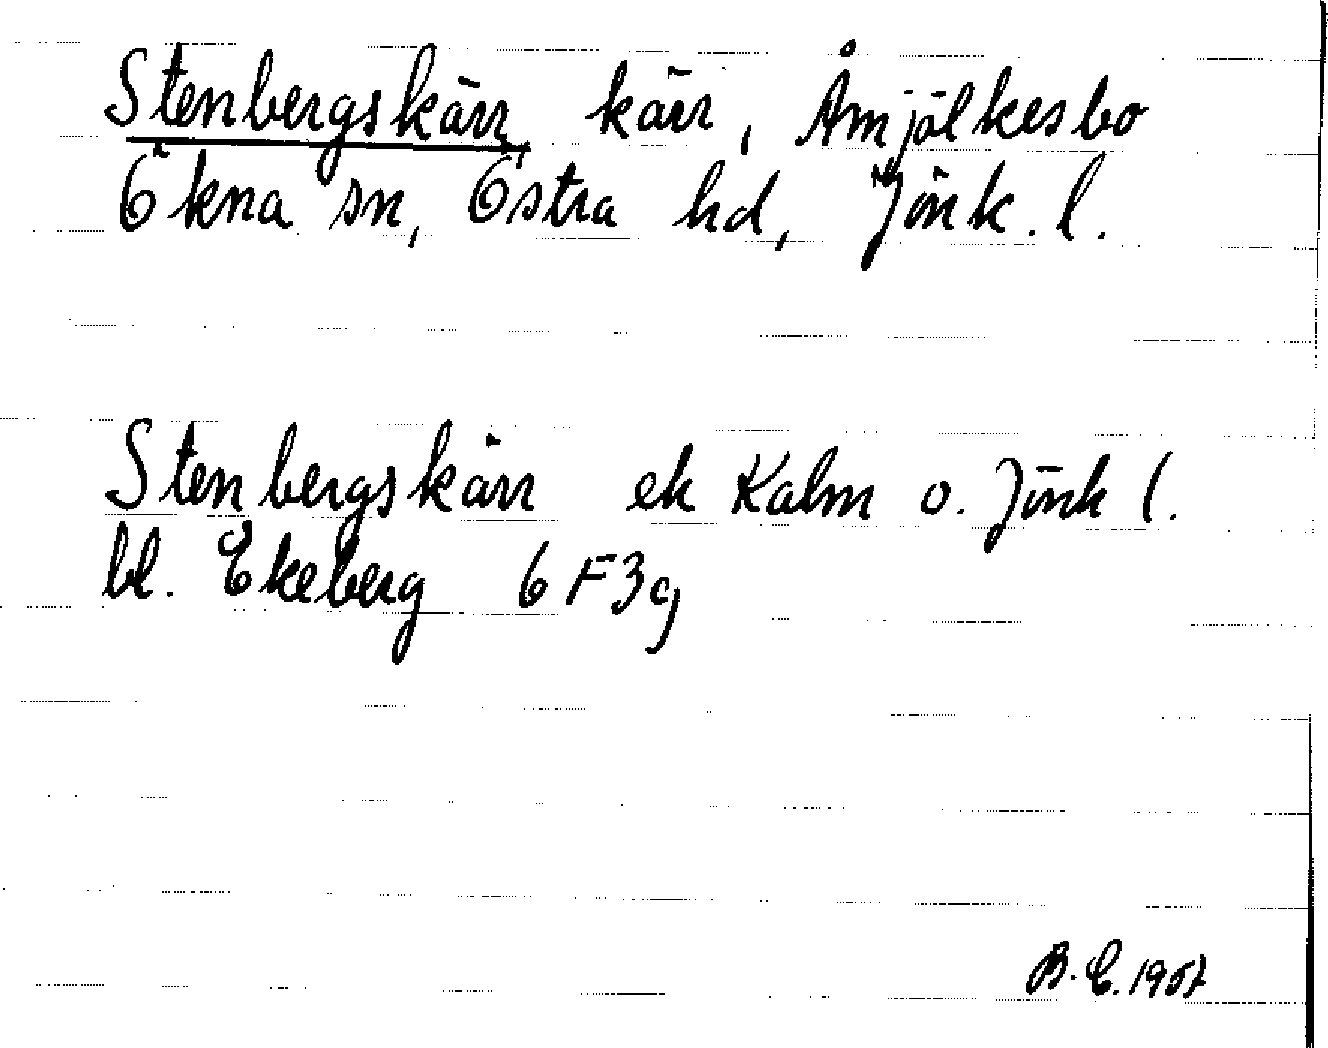 Stenbergskärr, kärr, Åmjölkesbo
Ökna sn, Östra hd, Jönk. l.
Stenbergskärr ek Kalm o. Jönk l.
bl. Ekeberg 6 F3g
B. E. 1957